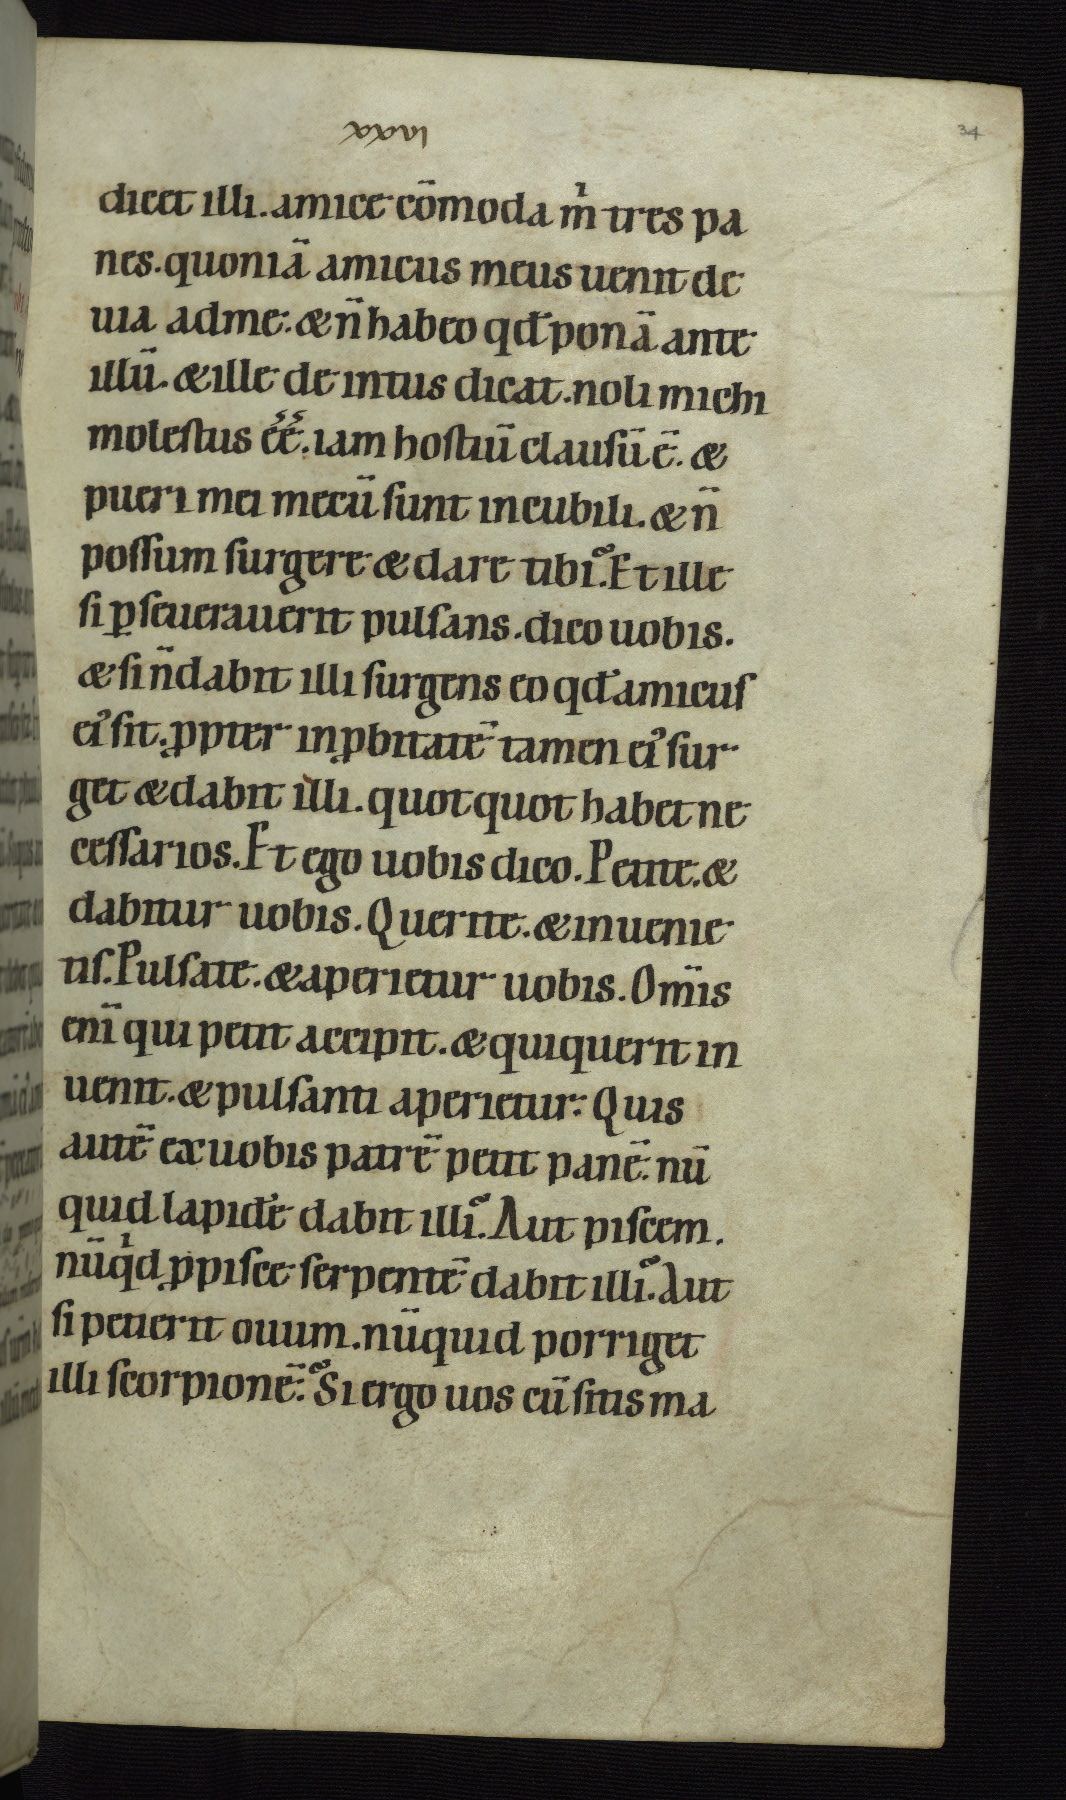 34
dicet illi. amice cōmoda m̍ tres pa
nes. quoniā amicus meus uenit de
uia ad me. & n̄ habeo qđ ponā ante
illū. & ille de intus dicat. noli michi
moleſtus éé. iam hoſtiū clauſū ē. &
pueri mei mecū ſunt in cubili. & n̄
poſſum ſurgere & dare tibi. Et ille
ſi ꝑſeuerauerit pulſans. dico uobis.
& ſi n̄ dabit illi ſurgens eo qđ amicuſ
ei᾿ ſit. ꝓpter inꝓbitatē tamen ei᾿ ſur
get & dabit illi. quotquot habet ne
ceſſarios. Et ego uobis dico. Petite. &
dabitur uobis. Querite. & inuenie
tiſ. Pulſate. & aperietur uobis. Om̄is
enī qui petit accipit. & qui querit in
uenit. & pulſanti aperietur. Quis
autē ex uobis patrē petit panē. nū
quid lapidē dabit illi. Aut piſcem.
nūqͥd ꝓ piſce ſerpentē dabit illi. Aut
ſi petierit ouum. nūquid porriget
illi ſcorpionē. Si ergo uos cū ſitis ma